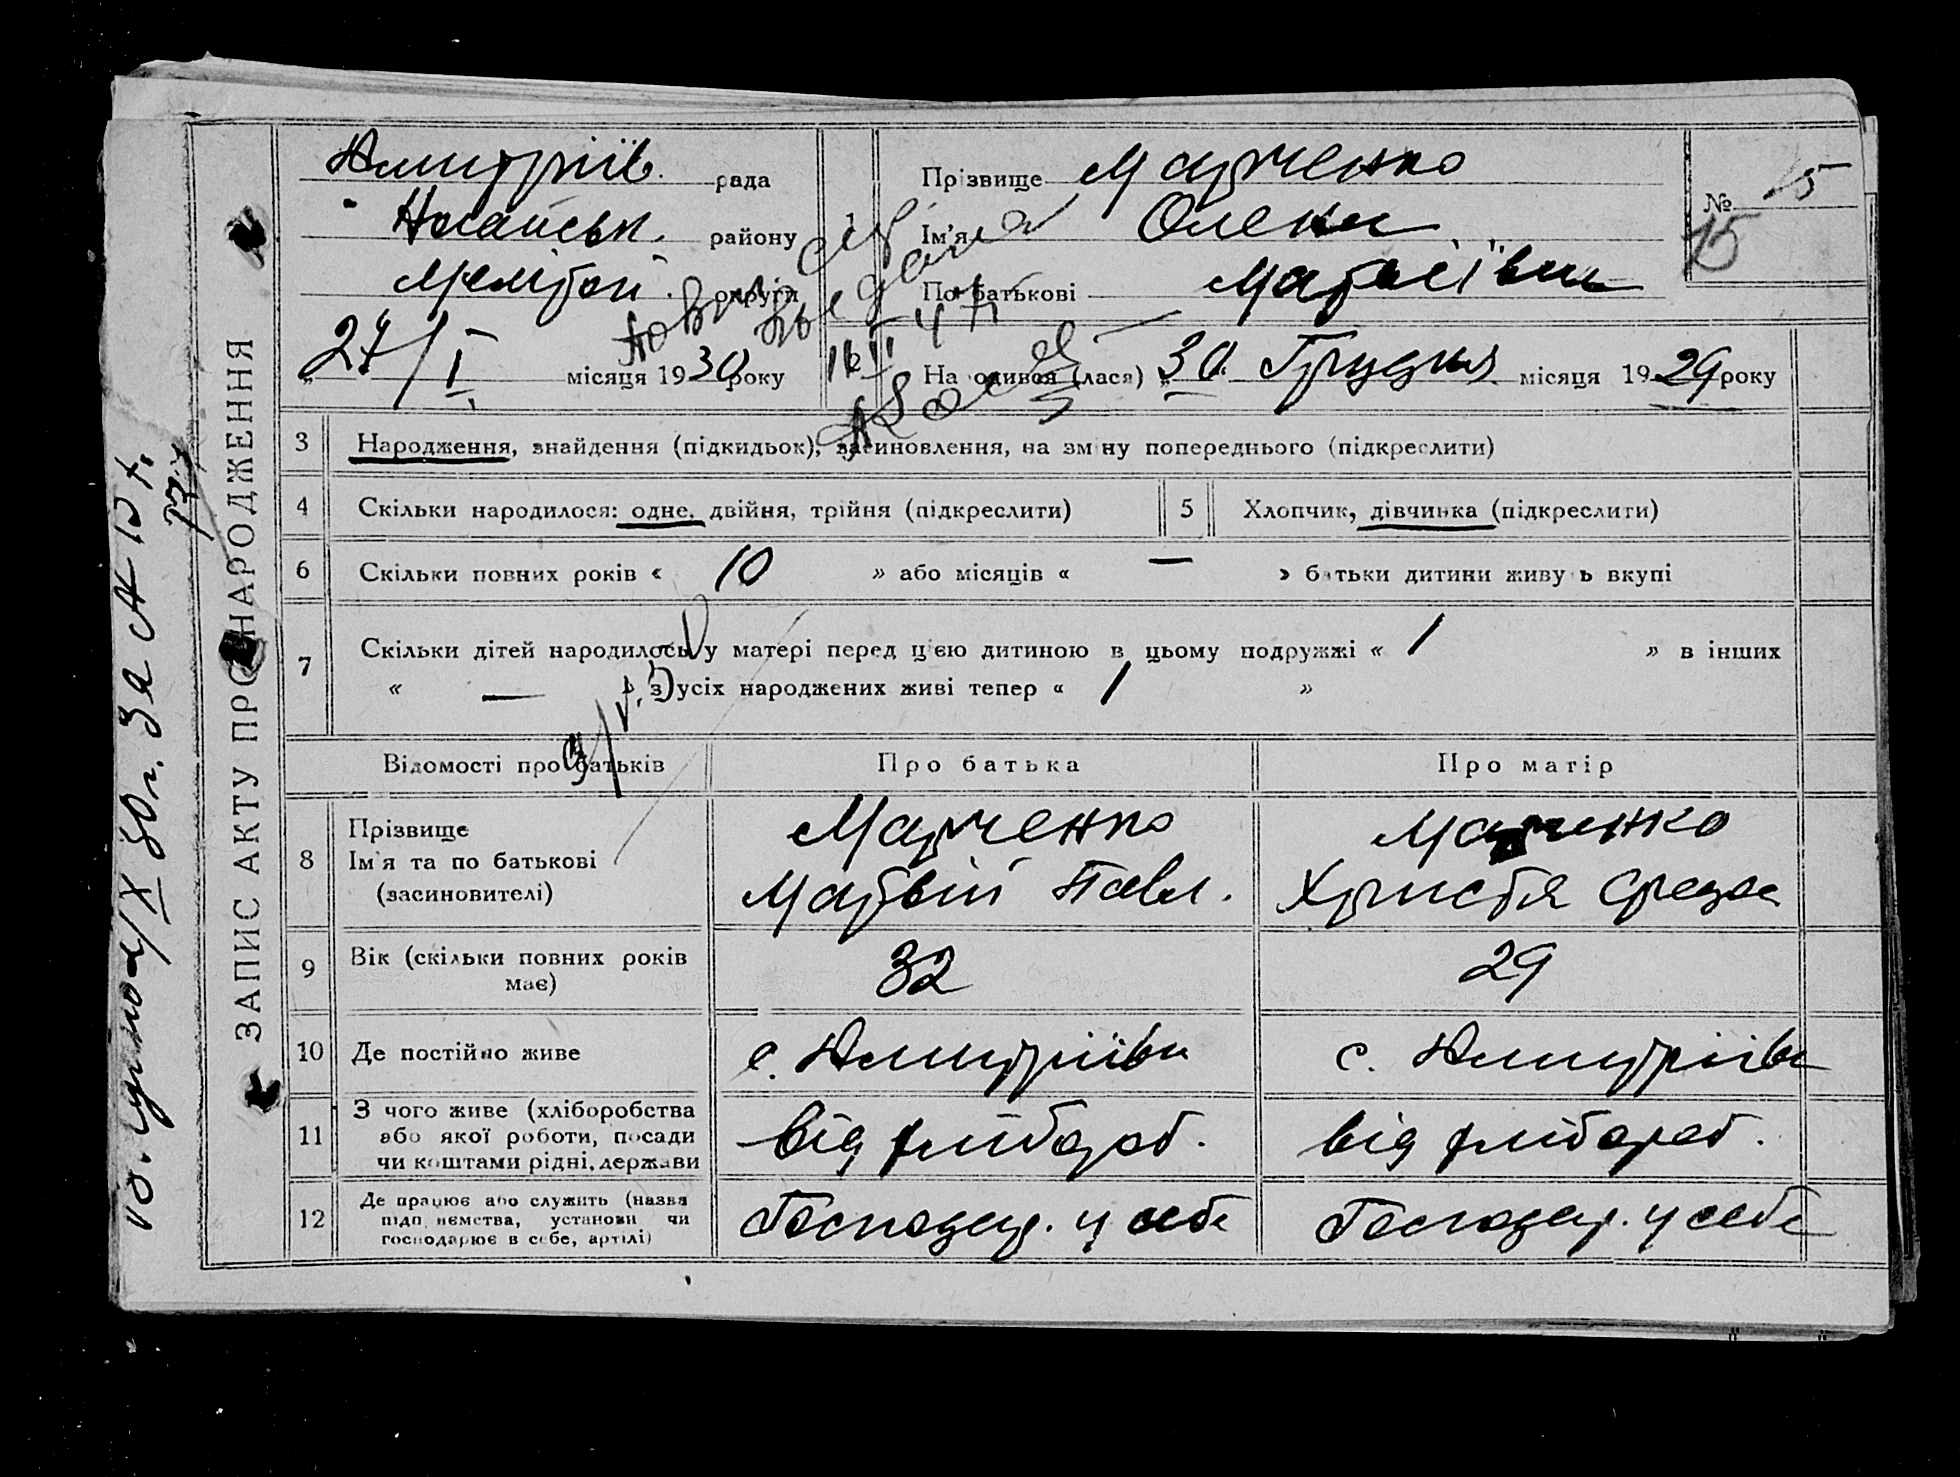 ЗАПИС АКТУ ПРО НАРОДЖЕННЯ
Дмитрів. рада
Ногайськ. району
Мелітоп. округи
24/I місяця 1930 року
Прізвище Марченко
Ім'я Олена
По-батькові Матвіївна
На одився (лася) „30 Грудня місяця 1929 року
№ 15
15
3 Народження, знайдення (підкидьок), засиновлення, на зміну попереднього (підкреслити)
4 Скільки народилося: одне, двійня, трійня (підкреслити)
5 Хлопчик, дівчинка (підкреслити)
6 Скільки повних років « 10 » або місяців « — » батьки дитини живуть вкупі
7 Скільки дітей народилось у матері перед цією дитиною в цьому подружжі « 1 » в інших
« — » з усіх народжених живі тепер « 1 »
Відомості про батьків Про батька Про матір
8 Прізвище Марченко Марченко
Ім'я та по батькові Матвій Павл. Христя
(засиновителі)
9 Вік (скільки повних років має) 32 29
10 Де постійно живе с. Дмитрівка с. Дмитрівка
11 З чого живе (хліборобства
або якої роботи, посади
чи коштами рідні, держави
від хлібороб. від хлібороб.
12 Де працює або служить (назва
підп иємства, установи чи
господарює в себе, артілі)
Господар. у себе Господар. у себе